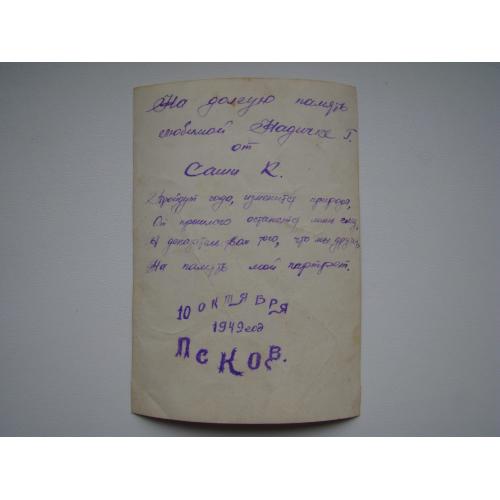 На долгую память
любимой Надичке Г.
от
Саши К.
Пройдут года, изменится природа,
От прошлого останется лишь след,
И доказателем того, что мы друзья,
На память мой портрет.
10 ОКТЯБРЯ
1949 год
ПСКОВ.